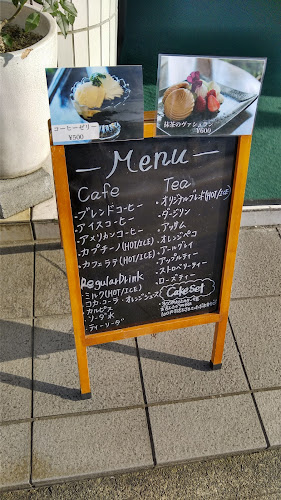 コーヒーゼリー
¥500
抹茶のヴァシュラン
¥600
— Menu —
Cafe
・ブレンドコーヒー
・アイスコーヒー
・アメリカンコーヒー
・カプチーノ(HOT/ICE)
・カフェラテ(HOT/ICE)
Tea
・オリジナルブレンド(HOT/ICE)
・ダージリン
・アッサム
・オレンジペコ
・アールグレイ
・アップルティー
・ストロベリーティー
・ローズティー
RegularDrink
・ミルク(HOT/ICE)
・コカ・コーラ ・オレンジジュース
・カルピス
・ソーダ水
・ティーソーダ
Cake Set